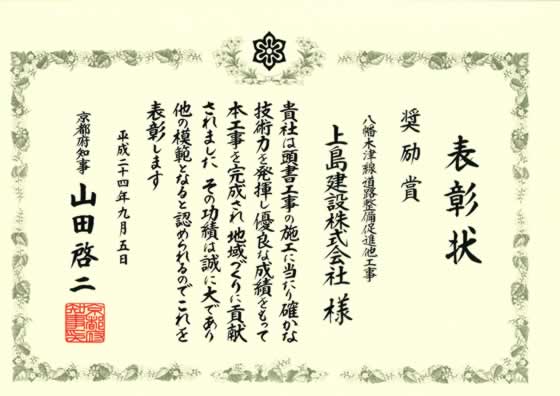 表彰状
奨励賞
八幡木津線道路整備促進他工事
上島建設株式会社 様
貴社は頭書工事の施工に当たり確かな
技術力を発揮し優良な成績をもって
本工事を完成され地域づくりに貢献
されました その功績は誠に大であり
他の模範となると認められるのでこれを
表彰します
平成二十四年九月五日
京都府知事 山田啓二
京都府
知事印